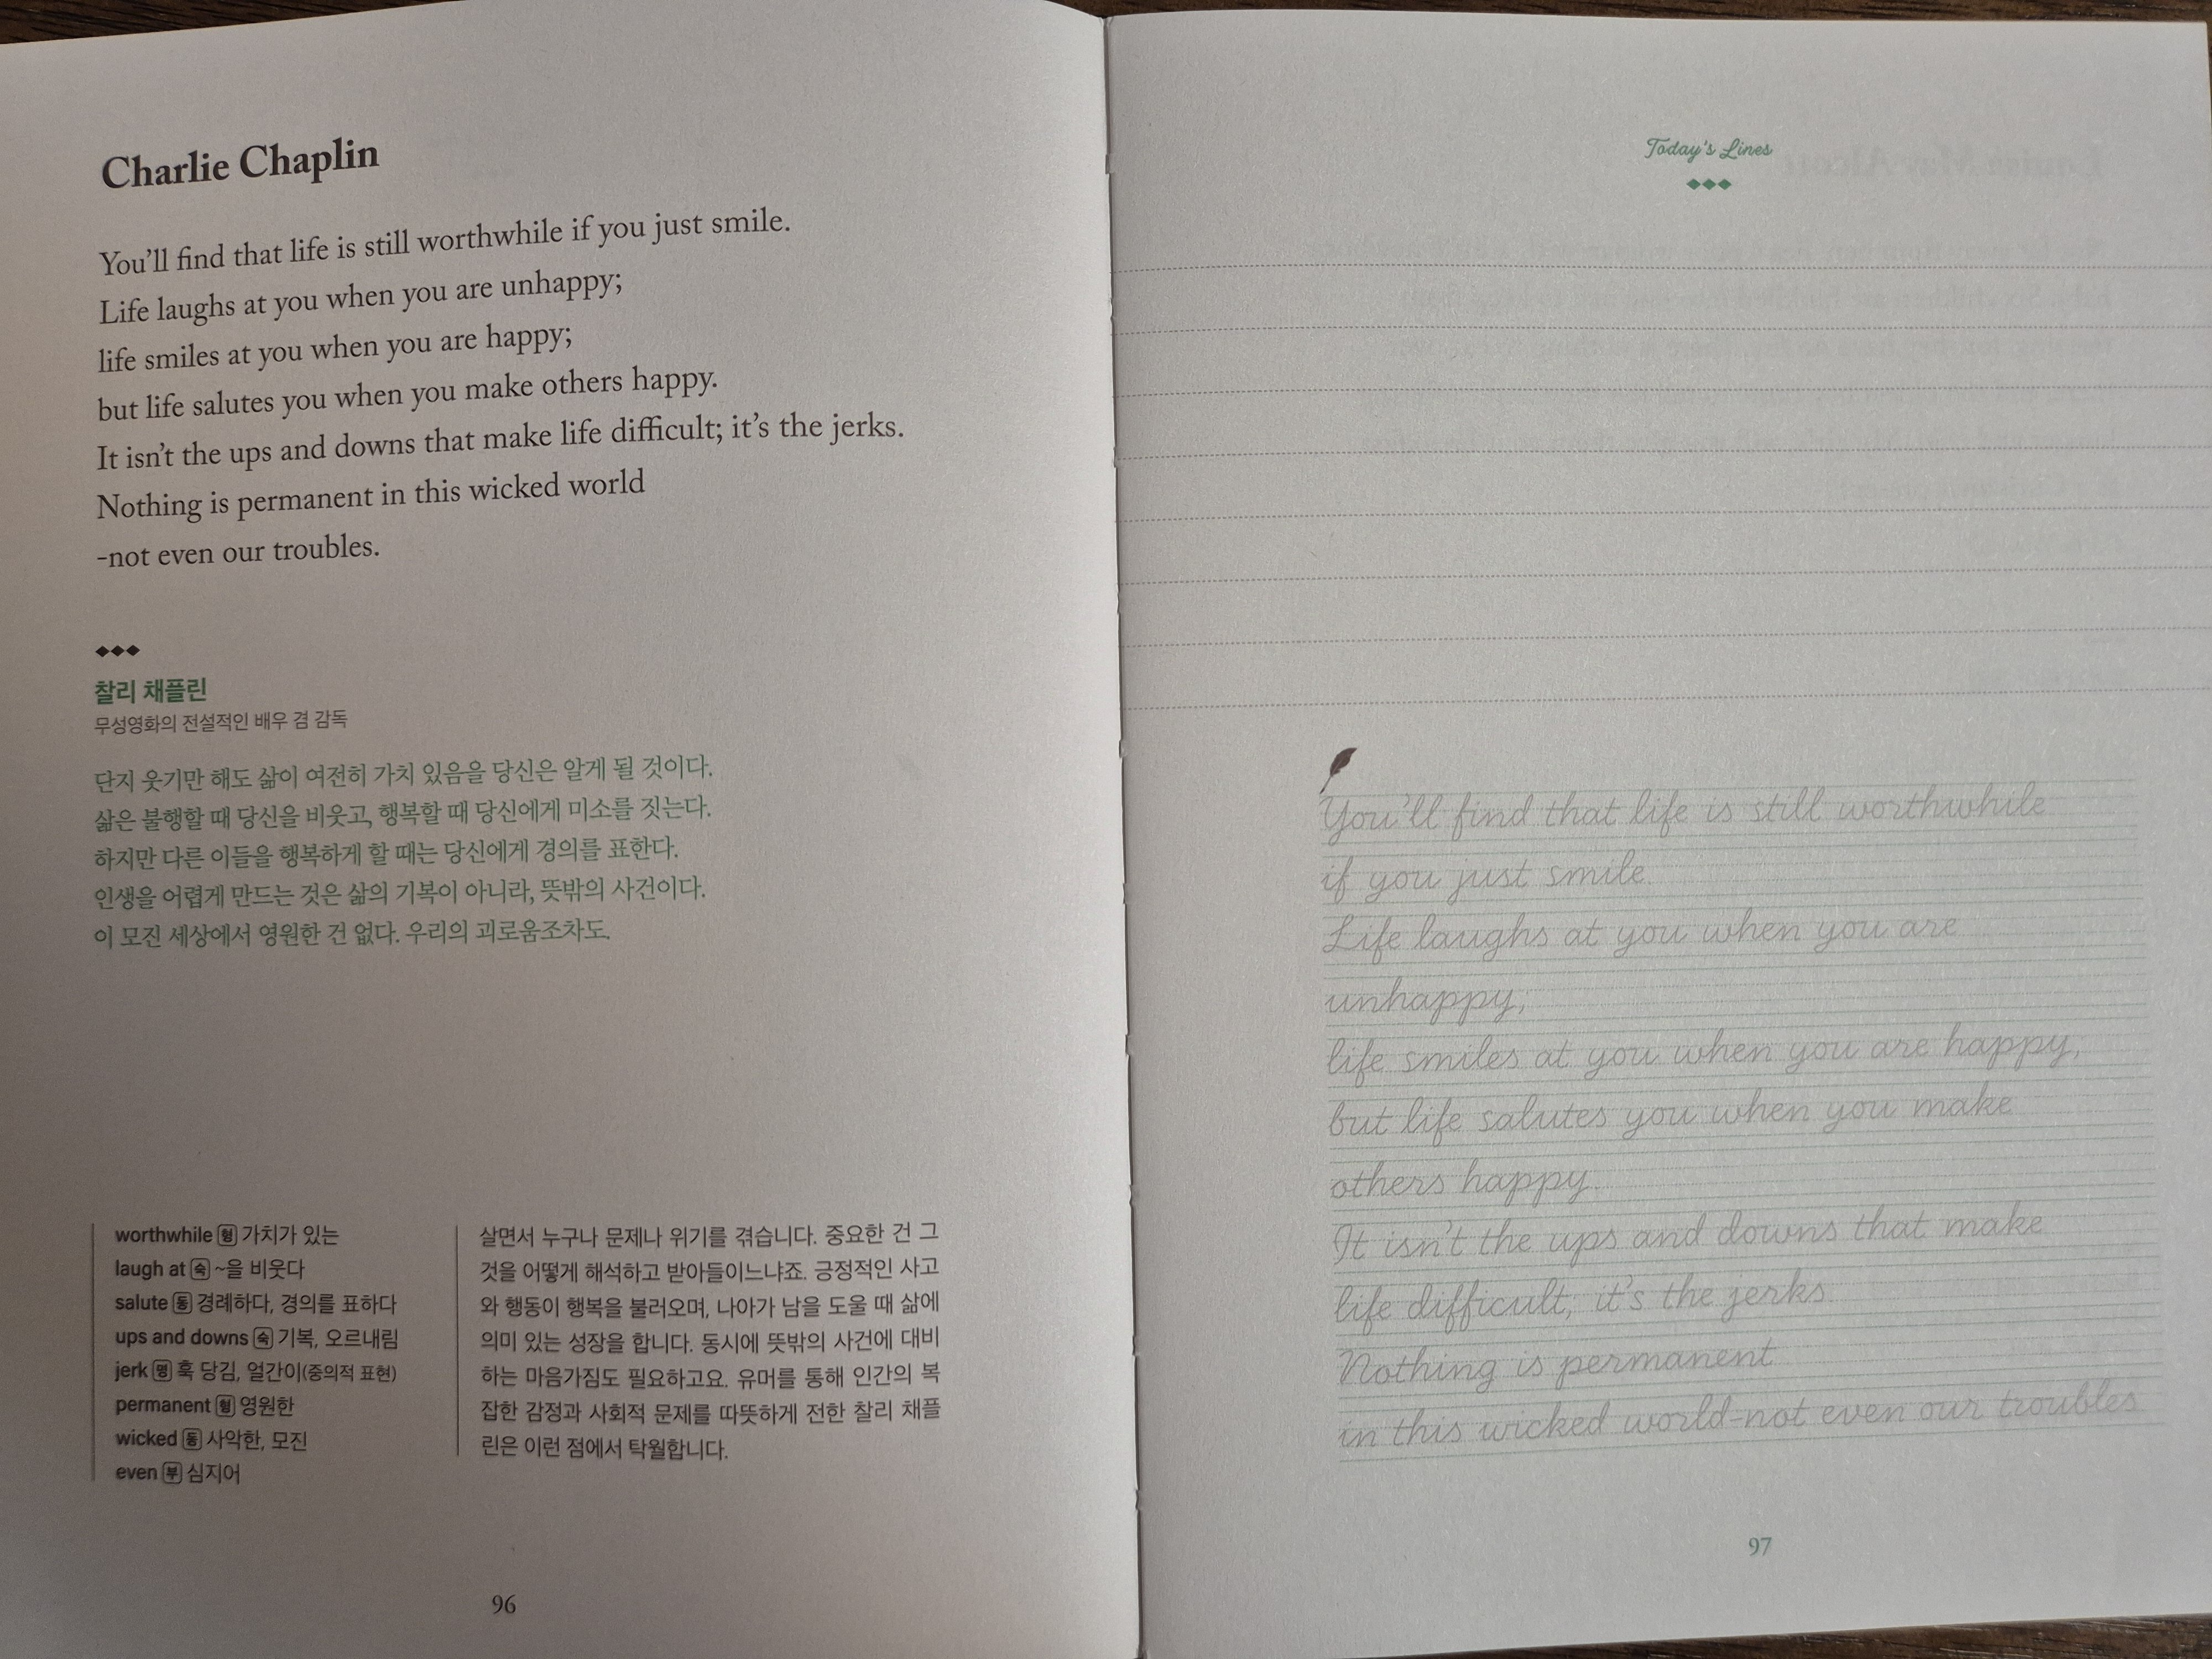 Charlie Chaplin
You'll find that life is still worthwhile if you just smile.
Life laughs at you when you are unhappy;
life smiles at you when you are happy;
but life salutes you when you make others happy.
It isn't the ups and downs that make life difficult; it's the jerks.
Nothing is permanent in this wicked world
-not even our troubles.
찰리 채플린
무성영화의 전설적인 배우 겸 감독
단지 웃기만 해도 삶이 여전히 가치 있음을 당신은 알게 될 것이다.
삶은 불행할 때 당신을 비웃고, 행복할 때 당신에게 미소를 짓는다.
하지만 다른 이들을 행복하게 할 때는 당신에게 경의를 표한다.
인생을 어렵게 만드는 것은 삶의 기복이 아니라, 뜻밖의 사건이다.
이 모진 세상에서 영원한 건 없다. 우리의 괴로움조차도.
worthwhile 형 가치가 있는
laugh at 숙 ~을 비웃다
salute 동 경례하다, 경의를 표하다
ups and downs 숙 기복, 오르내림
jerk 명 훅 당김, 얼간이(중의적 표현)
permanent 형 영원한
wicked 동 사악한, 모진
even 부 심지어
살면서 누구나 문제나 위기를 겪습니다. 중요한 건 그
것을 어떻게 해석하고 받아들이느냐죠. 긍정적인 사고
와 행동이 행복을 불러오며, 나아가 남을 도울 때 삶에
의미 있는 성장을 합니다. 동시에 뜻밖의 사건에 대비
하는 마음가짐도 필요하고요. 유머를 통해 인간의 복
잡한 감정과 사회적 문제를 따뜻하게 전한 찰리 채플
린은 이런 점에서 탁월합니다.
96
Today's Lines
You'll find that life is still worthwhile
if you just smile.
Life laughs at you when you are
unhappy;
life smiles at you when you are happy;
but life salutes you when you make
others happy.
It isn't the ups and downs that make
life difficult; it's the jerks.
Nothing is permanent
in this wicked world-not even our troubles
97